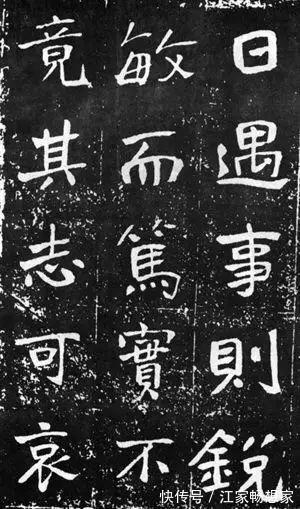 日遇事則銳
敏而篤實不
竟其志可哀
快传号／江家畅想家